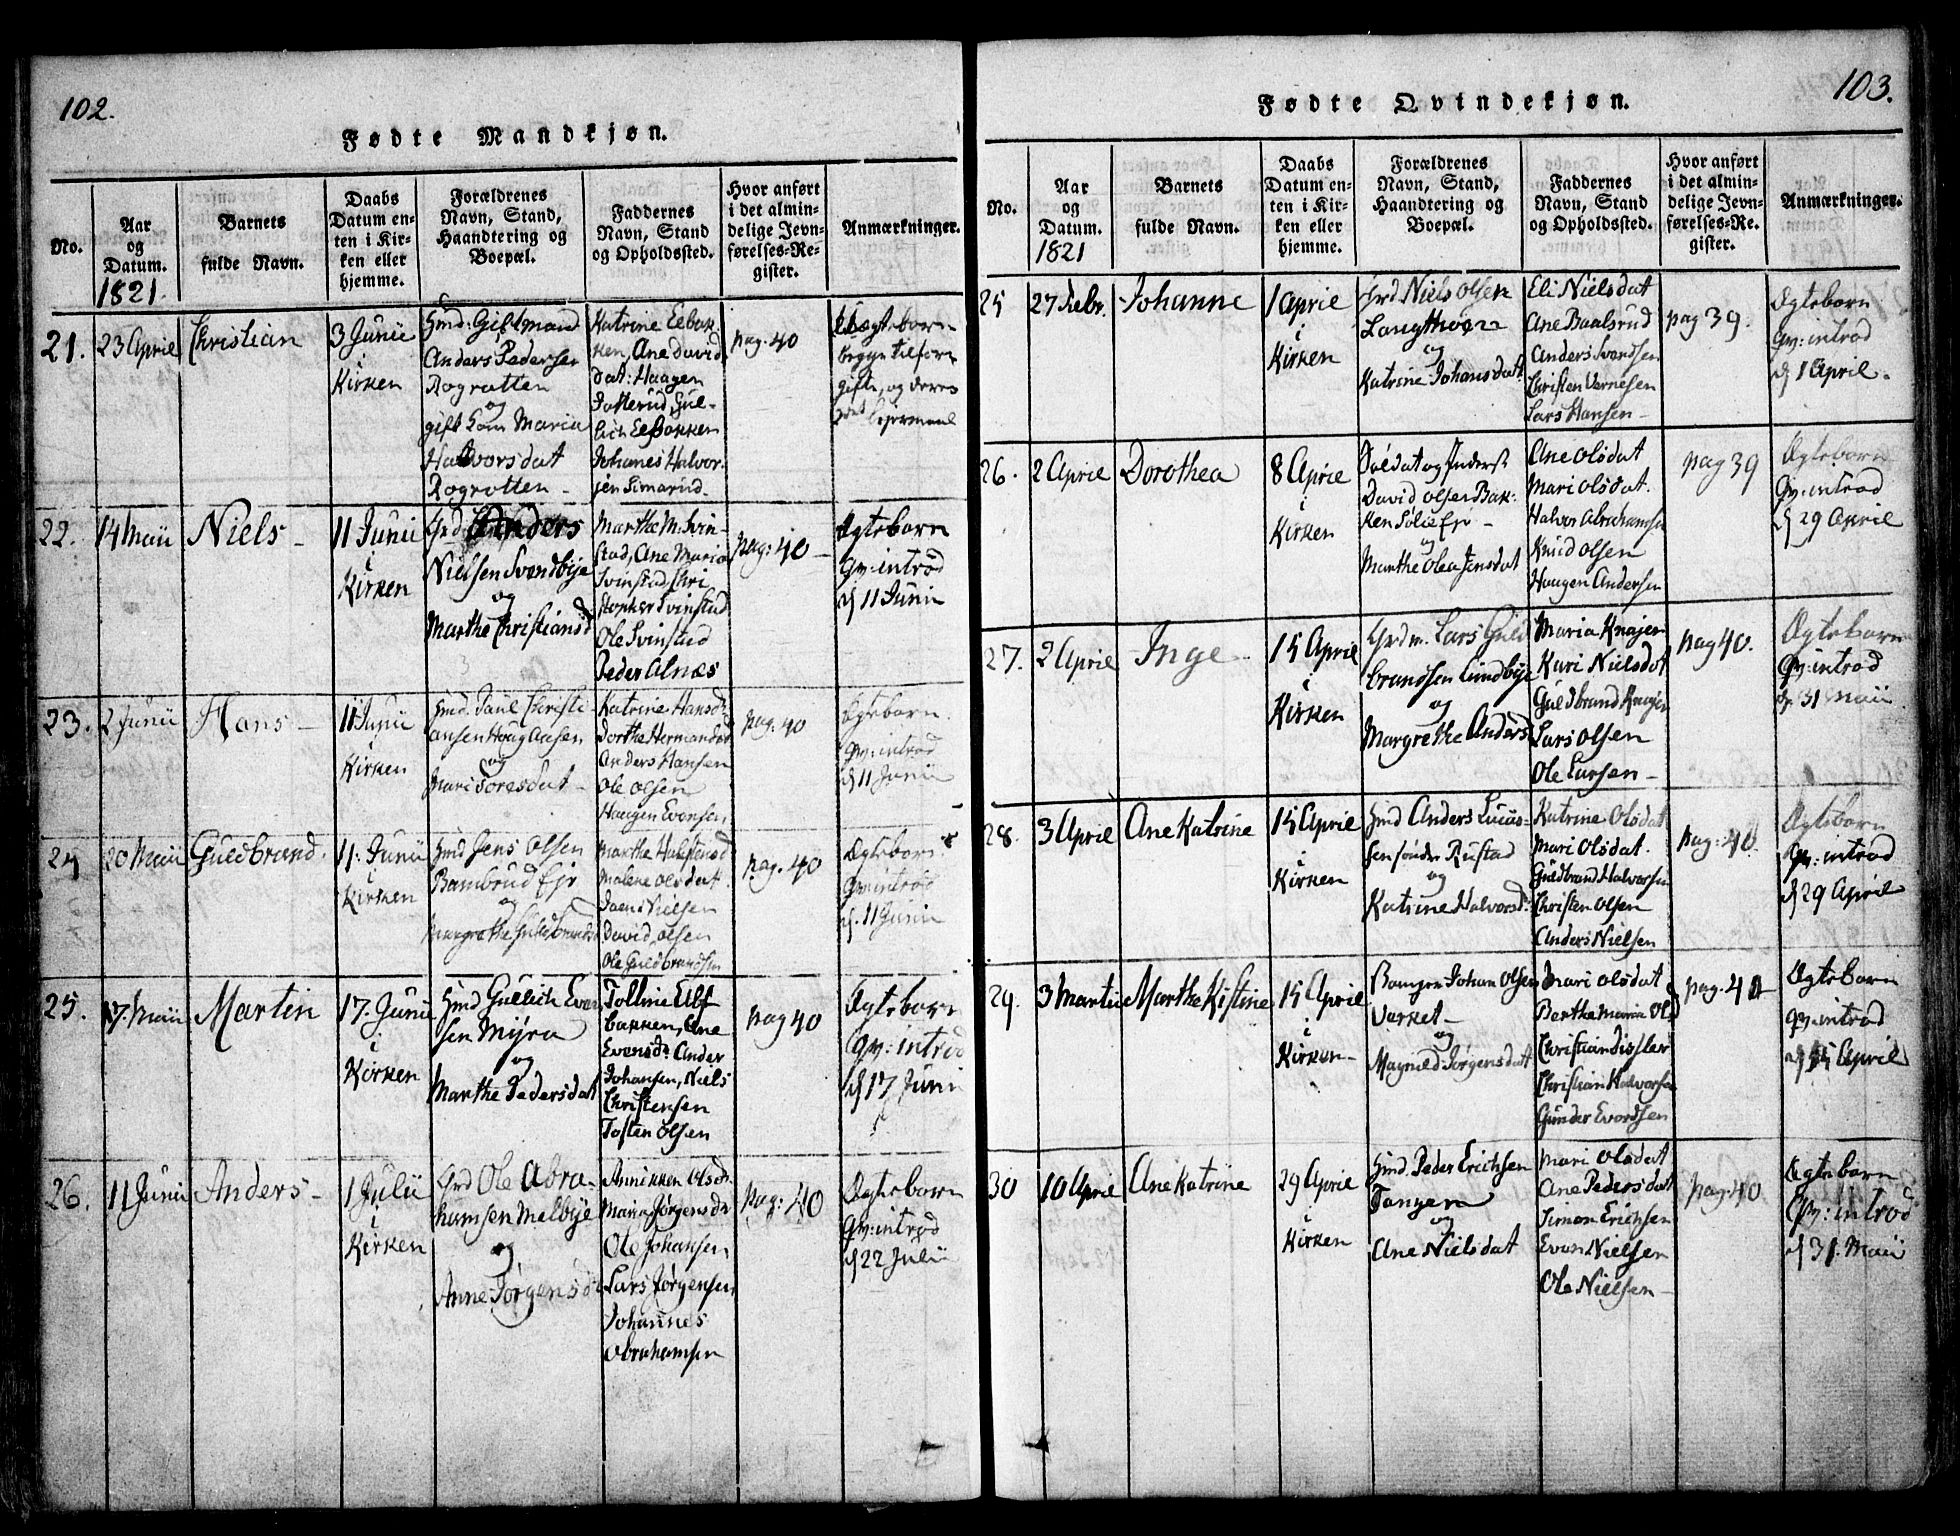 102.
Fødte Mandkjøn.
No.
Aar
og
Datum.
1821.
Barnets
fulde Navn.
Daabs
Datum en-
ten i Kir-
ken eller
hjemme.
Forældrenes
Navn, Stand,
Haandtering og
Boepæl.
Faddernes
Navn, Stand
og Opholdssted.
Hvor anført
i det almin-
delige Jevn-
førelses-Re-
gister.
Anmærkninger.
21.
23 April
Christian
3 Junii
i
Kirken
Gmd. Giftmand
Anders Pedersen
Rogrotten
og
gift Kom Maria
Halvorsdat
Rogrotten -
Katrine Eebak
ken, Ane David
dat: Haagen
Gul-
lich Eebakken
Johanes Halvor-
sen Simarud.
pag. 40
Uægteborn
begge tilforn
gifte, og deres
Leiermaal
22.
14 Maii
Niels -
11 Junii
i
Kirken
Grd Anders
Nielsen Svendbye
og
Marthe Christiansd
Marthe M. Svin-
stad, Ane Maria
Svinstad, Chri
stopher Svinstad
Ole Svinstad
Peder Alnæs
pag: 40 -
Ægteborn
Qv: introd
d 11 Junii
23.
2 Junii
Hans -
11 Junii
i
Kirken
Gmd. Paul Christi-
ansen Haug Aasen
og
Mari Toresdat -
Katrine Hansd
Dorthe Hermansd
Anders Hansen
Ole Olsen
Haagen Evensen
pag. 40
Ægteborn.
Qv: introd
d 11 Junii
24
20 Maii
Guldbrand.
11. Junii
i
Kirken
Gmd Jens Olsen
Bambrud Ejr
og
Margrethe Guldbrandsd
Marthe Halstensd
Malene Olsdat.
Jens Nielsen
David Olsen
Ole Guldbrandsen
pag. 40
Ægteborn.
Qv: introd
d. 11 Junii
25.
17 Maii
Martin
17. Junii
i
Kirken
Gmd Gullich Even
sen Myra
og
Marthe Pedersdat
Tolline Elef
bakken, Ane
Evensd. Ander
Johansen, Niels
Christensen
Tosten Olsen
pag 40
Ægteborn
Qv: introd
d 17 Juni
26.
11 Junii
Anders -
1 Julii
i
Kirken
Grd Ole Abra-
hamsen Melbye
og
Anne Jørgensd
Annikken Olsd
Maria Jørgensd
Ole Johansen
Lars Jørgensen
Johannes
Abrahamsen
pag: 40
Ægteborn
Qv: introd
d 22 Julii
103.
Fødte Qvindekjøn.
No.
Aar
og
Datum.
1821
Barnets
fulde Navn.
Daabs
Datum en-
ten i Kir-
ken eller
hjemme.
Forældrenes
Navn, Stand,
Haandtering og
Boepæl.
Faddernes
Navn, Stand
og Opholdssted.
Hvor anført
i det almin-
delige Jevn-
førelses-Re-
gister.
Anmærkninger.
25
27 Febr.
Johanne
1 April
i
Kirken
Grd Niels Olsen
Langthogn
og
Katrine Johansdat.
Eli Nielsdat
Ane Baalsrud
Anders Svendsen
Christen Vernesen
Lars Hansen -
pag 39.
Ægteborn
Qv: introd
d 1 April.
26.
2 April
Dorothea
8 April
i
Kirken
Soldat og Inderst
David Olsen Bak-
ken Solie Ejr -
og
Marthe Olea Jensdat
Ane Olsdat
Mari Olsdat.
Halvor Abrahamsen
Knud Olsen
Haagen Andersen
pag 39
Ægteborn
Qv: introd
d 29 April
27.
2 April
Inge -
15 April
i
Kirken
Grdm. Lars Guld
brandsen Lundbye
og
Margrethe Andersd
Maria Knajer
Kari Nielsdat
Guldbrand Knajer
Lars Olsen
Ole Larsen -
pag 40.
Ægteborn
Qv: introd
d 31 Maii
28.
3 April
Ane Katrine
15 April
i
Kirken
Gmd Anders Lucas-
sen sønder Rustad
og
Katrine Halvorsd
Katrine Olsdat
Mari Olsdat.
Guldbrand Halvorsen
Christen Olsen
Anders Nielsen
pag: 40
Ægteborn
Qv: introd
d 29 April
29.
3 Martii
Marthe Kistine
15 April
i
Kirken -
Johan Olsen
Værket -
og
Magnild Jørgensdatt
Mari Olsdat
Berthe Maria Olsd
Christian Dissler
Christian Halvorsen
Gunder Evordsen
pag. 40
Ægteborn
Qv: introd
d 15 April
30
10 April
Ane Katrine
29 April
i
Kirken
Gmd. Peder Erichsen
Tangen
og
Ane Nielsdat
Mari Olsdat
Ane Pedersdat
Simon Erichsen
Even Nielsen
Ole Nielsen -
pag: 40
Ægteborn
Qv: introd
d 31. Maii